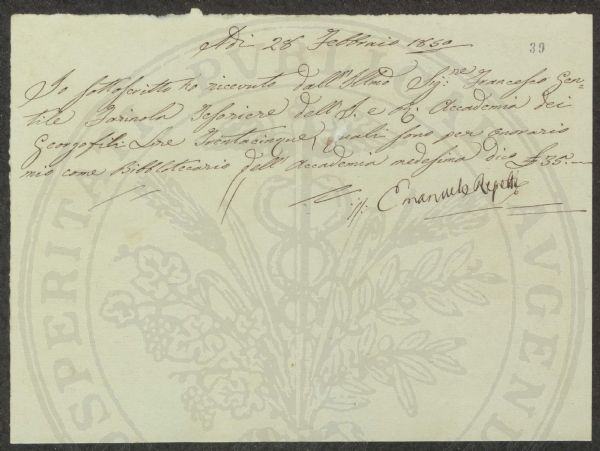 Adì 28 Febbraio 1850
39
Io sottoscritto ho ricevuto dall'Illmo Sig:re Francesco Gen=
tile Farinola Tesoriere dell'I. e R. Accademia dei
Georgofili Lire Trentacinque, quali sono per onorario
mio come Bibliotecario dell'Accademia medesima dico £ 35.—
Emanuele Repetti
PROSPERITA
PUBBLICA
AUGENDA